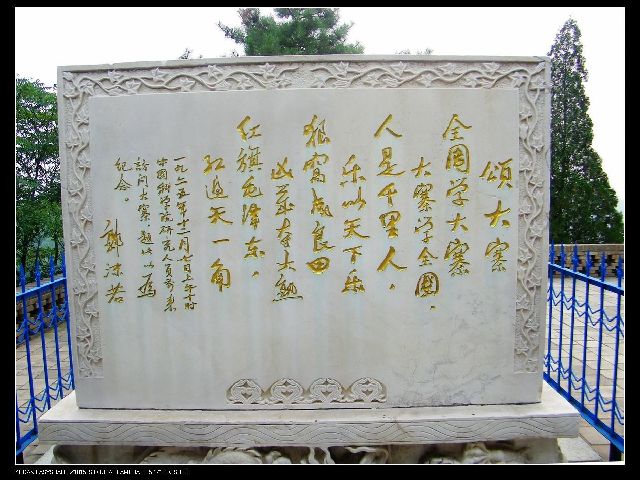 颂大寨
全国学大寨
大寨学全国，
人是千里人，
乐以天下乐
狼窝成良田
凶岁夺大熟
红旗毛泽东，
红遍天一角
一九六五年十二月
中国科学院研究人员
访问大寨，题此以为
纪念。
郭沫若